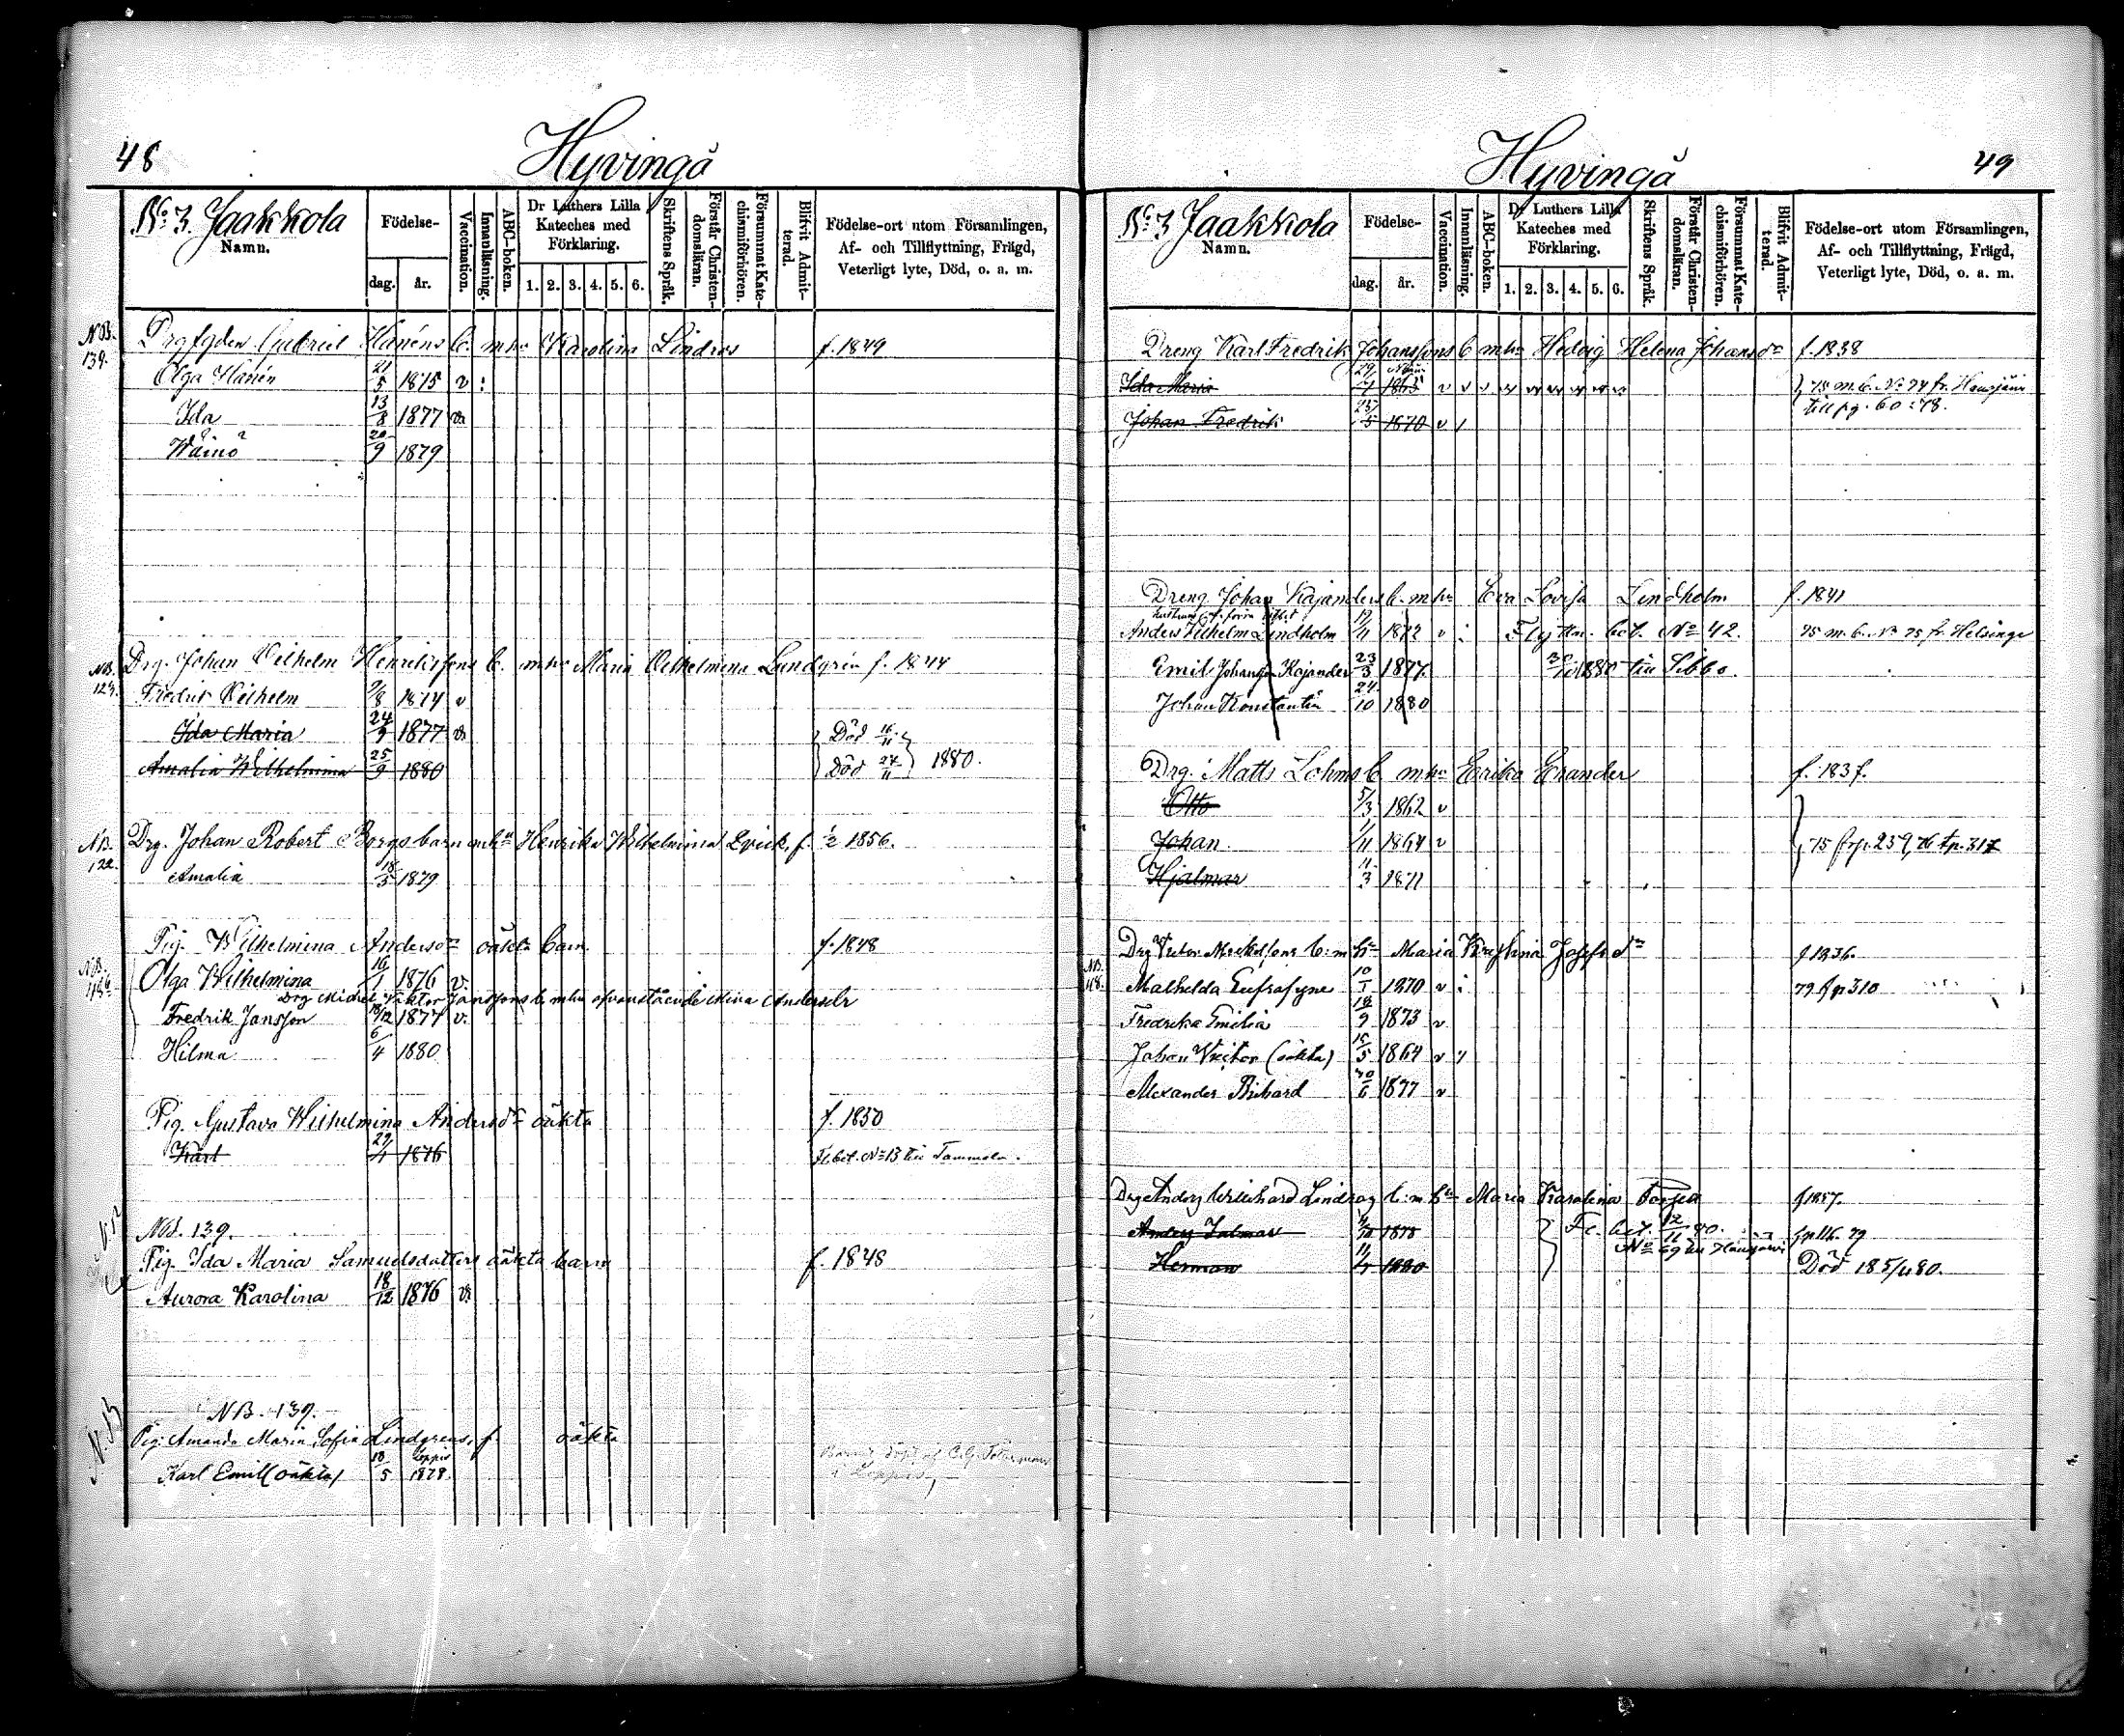 48
Hyvingå
No 3. Jaakkola
Namn.
Födelse-
dag.
år.
Vaccination.
Innanläsning.
ABC-boken.
Dr Luthers Lilla
Kateches med
Förklaring.
1. 2. 3. 4. 5. 6.
Skriftens Språk.
Förstår Christen-
domsläran.
Försummat Kate-
chismiförhören.
Blifvit Admit-
terad.
Födelse-ort utom Församlingen,
Af- och Tillflyttning, Frägd,
Veterligt lyte, Död, o. a. m.
NB. 139. Gabriel Hanéns b. m. hu Karolina Lindros f. 1849
Olga Hanén 21/5 1875 v :
Ida 13/8 1877 v
Wäinö 20/9 1879
NB. 123. Drg. Johan Vilhelm Henrikssons b. m hu Maria Vilhelmina Lundgrén f. 1844
Fredrik Vilhelm 9/8 1874 v
Ida Maria 24/3 1877 v Död 16/11
Amalia Wilhelmina 25/9 1880 Död 24/11 } 1880.
NB. 122. Drg. Johan Robert Borgs barn m hu Henrika Wilhelmina f. 1/2 1856.
Amalia 18/5 1879
Pig. Wilhelmina Andersdr oäkta barn f. 1848
NB.
Olga Wilhelmina 16/1 1876 v.
Drg Michel Viktor Janssons b m hu ofvanstående Mina Andersdr
Fredrik Jansson 18/12 1877 v.
Hilma 6/4 1880
Pig. Gustava Wilhelmina Andersdr oäkta f. 1850
Karl 29/1 1876 Fl. bet. No 13 till Tammela.
NB. 139.
Pig. Ida Maria Samuelsdotters oäkta barn f. 1848
Aurora Karolina 18/12 1876 v.
NB. 139.
Pig. Amanda Maria Sofia Lindgrens, f. oäkta
Loppis
Karl Emil (oäkta) 18/5 1878.
i Loppis
Hyvingå
49
No 3 Jaakkola
Namn.
Födelse-
dag.
år.
Vaccination.
Innanläsning.
ABC-boken.
Dr Luthers Lilla
Kateches med
Förklaring.
1. 2. 3. 4. 5. 6.
Skriftens Språk.
Förstår Christen-
domsläran.
Försummat Kate-
chismiförhören.
Blifvit Admit-
terad.
Födelse-ort utom Församlingen,
Af- och Tillflyttning, Frägd,
Veterligt lyte, Död, o. a. m.
Dreng Karl Fredrik Johanssons b m hu Hedvig Helena Johansdr f. 1838
Ida Maria 1865 v v v } 75 m. b. No 74 fr. Hausjärvi
Johan Fredrik 25/5 1870 v / till pg. 60 : 78.
Dreng Johan Kajanders b. m hu Eva Lovisa Lindholm f. 1841
Anders Vilhelm Lindholm 1872 v : Flyttn. bet. No 42. 75 m. b. No 75 fr. Helsinge
Emil Johansson Kajander 23/3 1877. 1880 till Sibbo.
Johan Konstantin 24/10 1880
Drg. Matts Lohms b m hu Erika Enander
Otto 5/3 1862 v
Johan 11/11 1864 v } 75 frp. 259, 76 tp. 317
Hjalmar 11/3 1871
Drg Victor b: m hu Maria Kristina Josefsdr f 1836.
NB. 118. Mathilda Eufrosyne 10/1 1870 v : 79 fp 310
Fredrika Emilia 18/9 1873 v
Johan Victor (oäkta) 15/5 1864 v
Alexander Rikhard 30/6 1877 v
Drg Anders Wilhard b: m hu Maria Karolina f 1857.
Anders Jalmar 1878 } Fl. bet. 12/11 80. fp 116. 79
No 69 till Hausjärvi
Herman 1880 Död 1880.